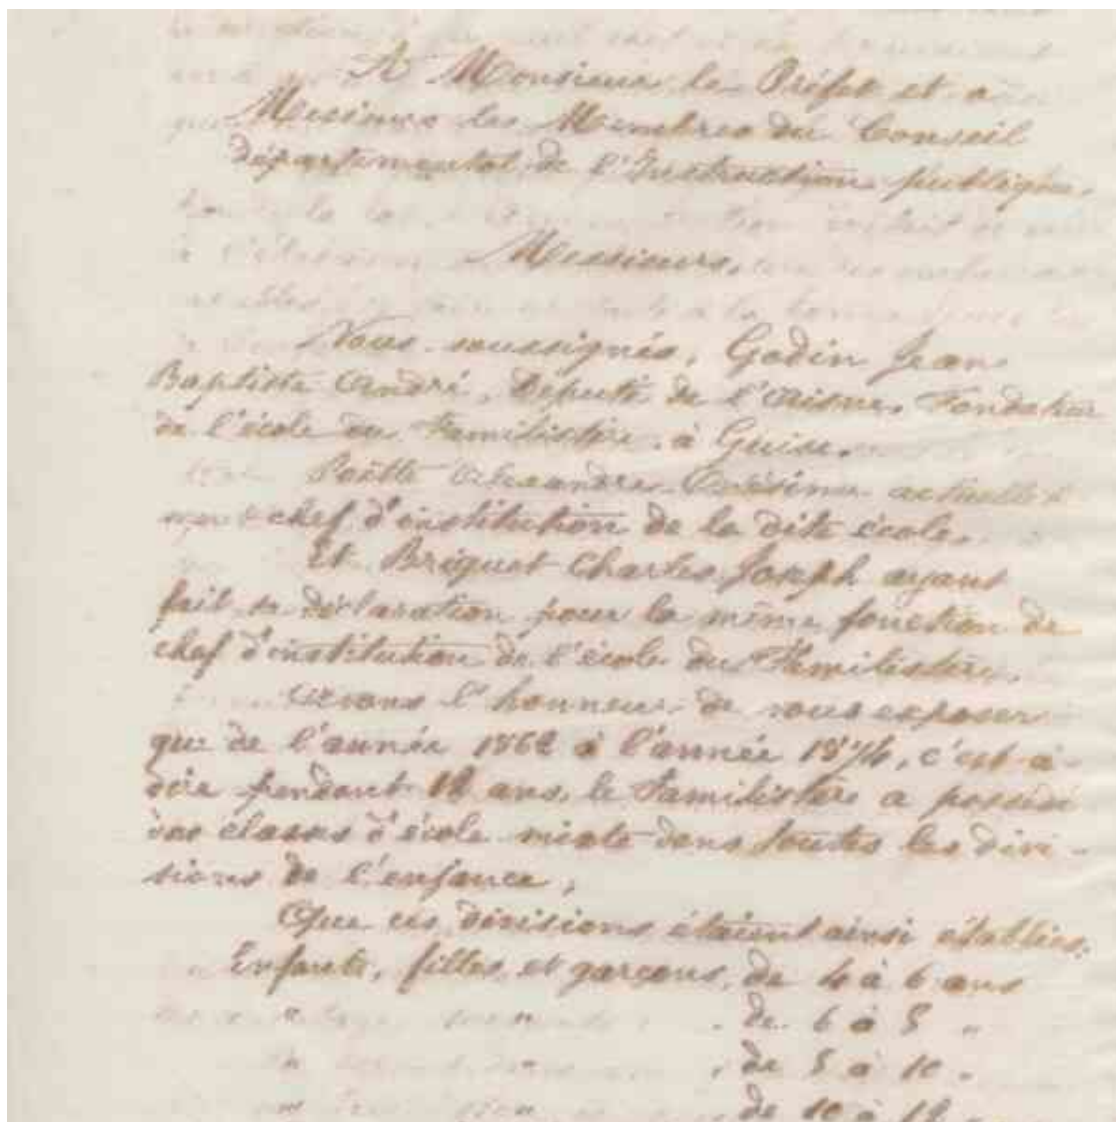 A Monsieur le Préfet et a
Messieurs les Membres du Conseil
départemental de l'Instruction publique.
Messieurs,
Nous soussignés, Godin Jean
Baptiste André, Député de l'Aisne, Fondateur
de l'école du Familistère à Guise.
Poëtte Alexandre actuelle
ment chef d'institution de la dite école.
Et Briquet Charles Joseph ayant
fait sa déclaration pour la même fonction de
chef d'institution de l'école du Familistère.
Avons l'honneur de vous exposer
que de l'année 1862 à l'année 1874, c'est-à-
dire pendant 12 ans, le Familistère a possédé
des classes d'école mixte dans toutes les divi-
sions de l'enfance;
Que ces divisions étaient ainsi établies:
Enfants, filles et garçons, de 4 à 6 ans
" " de 6 à 8 "
" " de 8 à 10 "
" " de 10 à 12 "